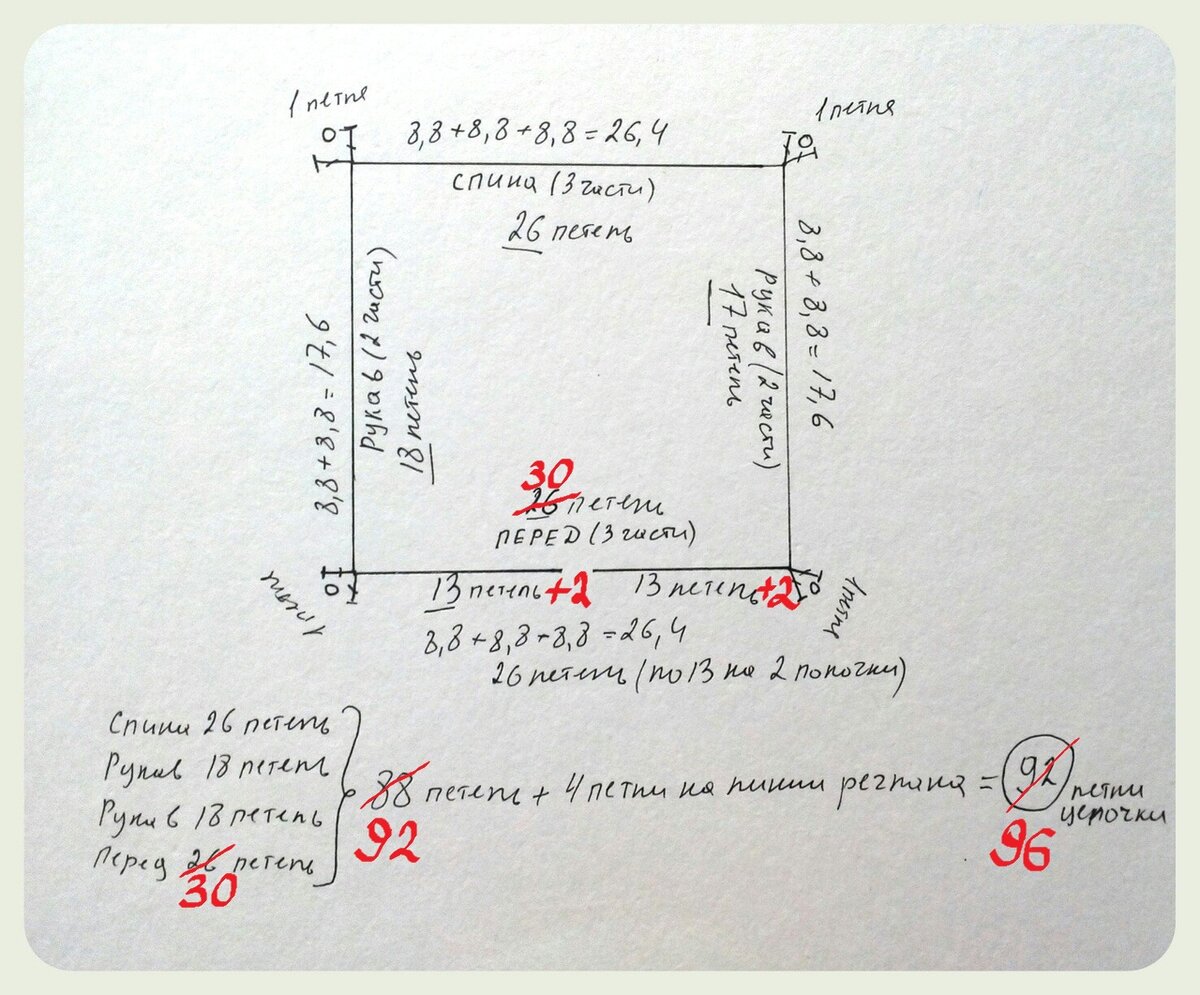 1 петля
1 петля
8,8+8,8+8,8=26,4
спина (3 части)
26 петель
8,8+8,8=17,6
Рукав (2 части)
18 петель
8,8+8,8=17,6
Рукав (2 части)
17 петель
30
26 петель
ПЕРЕД (3 части)
1 петля
13 петель +2
13 петель +2
1 петля
8,8+8,8+8,8=26,4
26 петель (по 13 на 2 полочки)
Спина 26 петель
Рукав 18 петель
Рукав 18 петель
Перед 26 петель
30
88 петель + 4 петли на линии реглана = 92 петли
цепочки
92
96